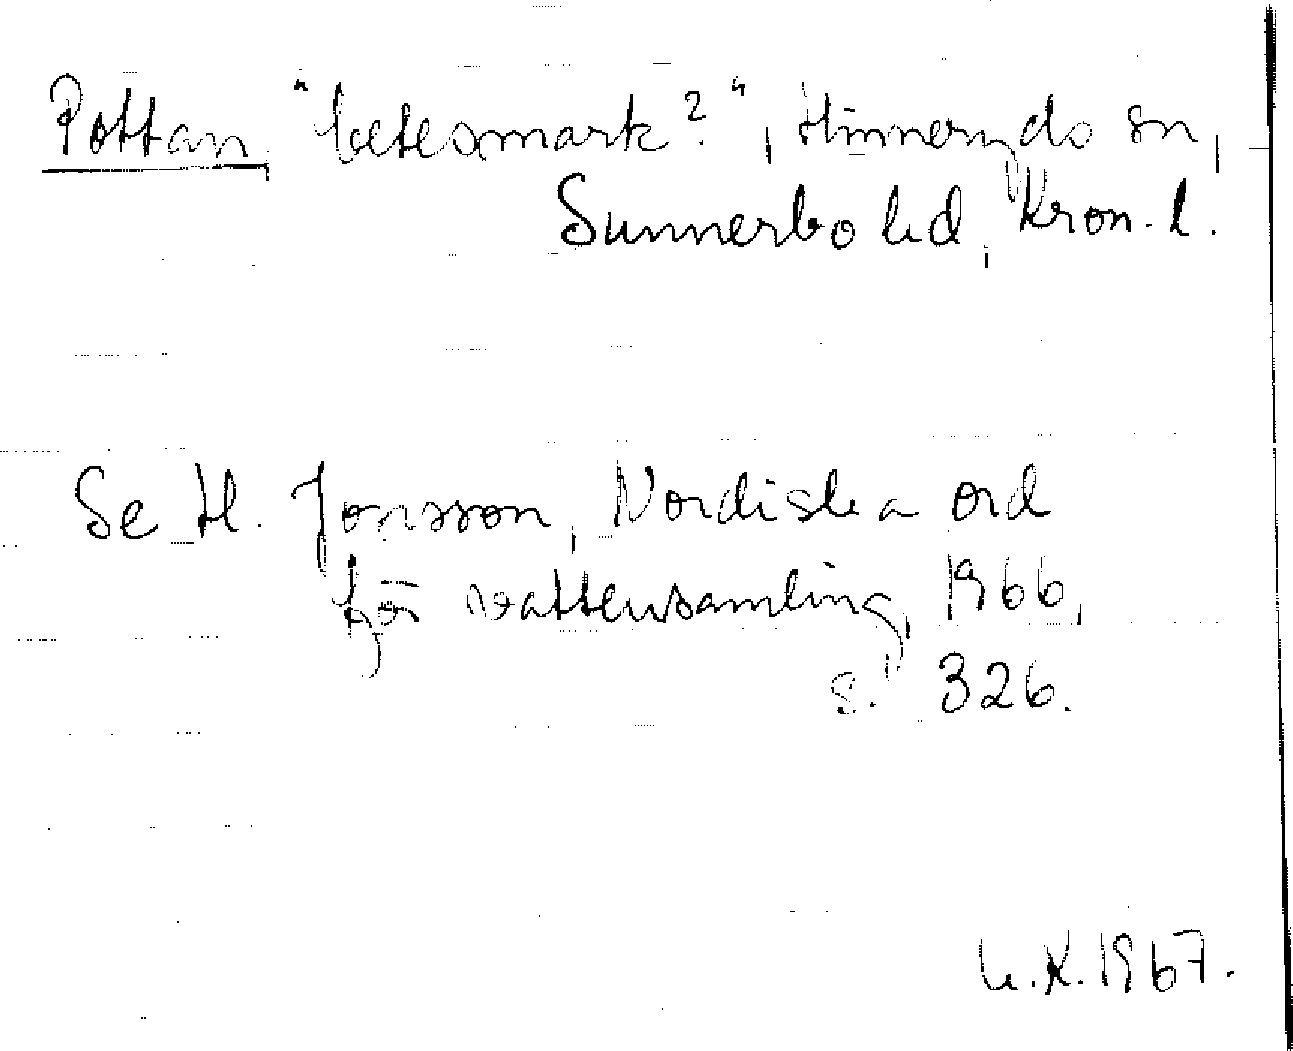 Pottan, "betesmark?", Hinneryds sn,
Sunnerbo hd, Kron. l.
Se H. Jonsson, Nordiska ord
för vattensamling, 1966,
s. 326.
1967.